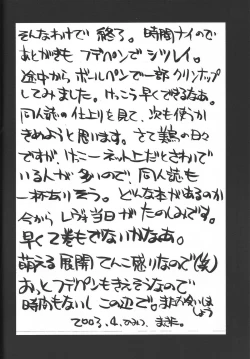 そんなわけで 終了。時間ナイので
あとがきも フデペンで シツレイ。
途中から ボールペンで一部 クリンナップ
してみました。けっこう早くできるなあ。
同人誌の仕上りを見て、次も使うか
きめようと思います。さて 美鳥の日々
ですが、けっこーネット上だとさわいで
いる人が多いので、同人誌も
一杯ありそう。どんな本があるのか
今から レヴォ当日が たのしみです。
早く2巻もでないかなあ。
萌える展開てんこ盛りなので(笑)
おっとフデペンもきえそうなので
時間もないし この辺で。またお会いしましょう
2003.4.